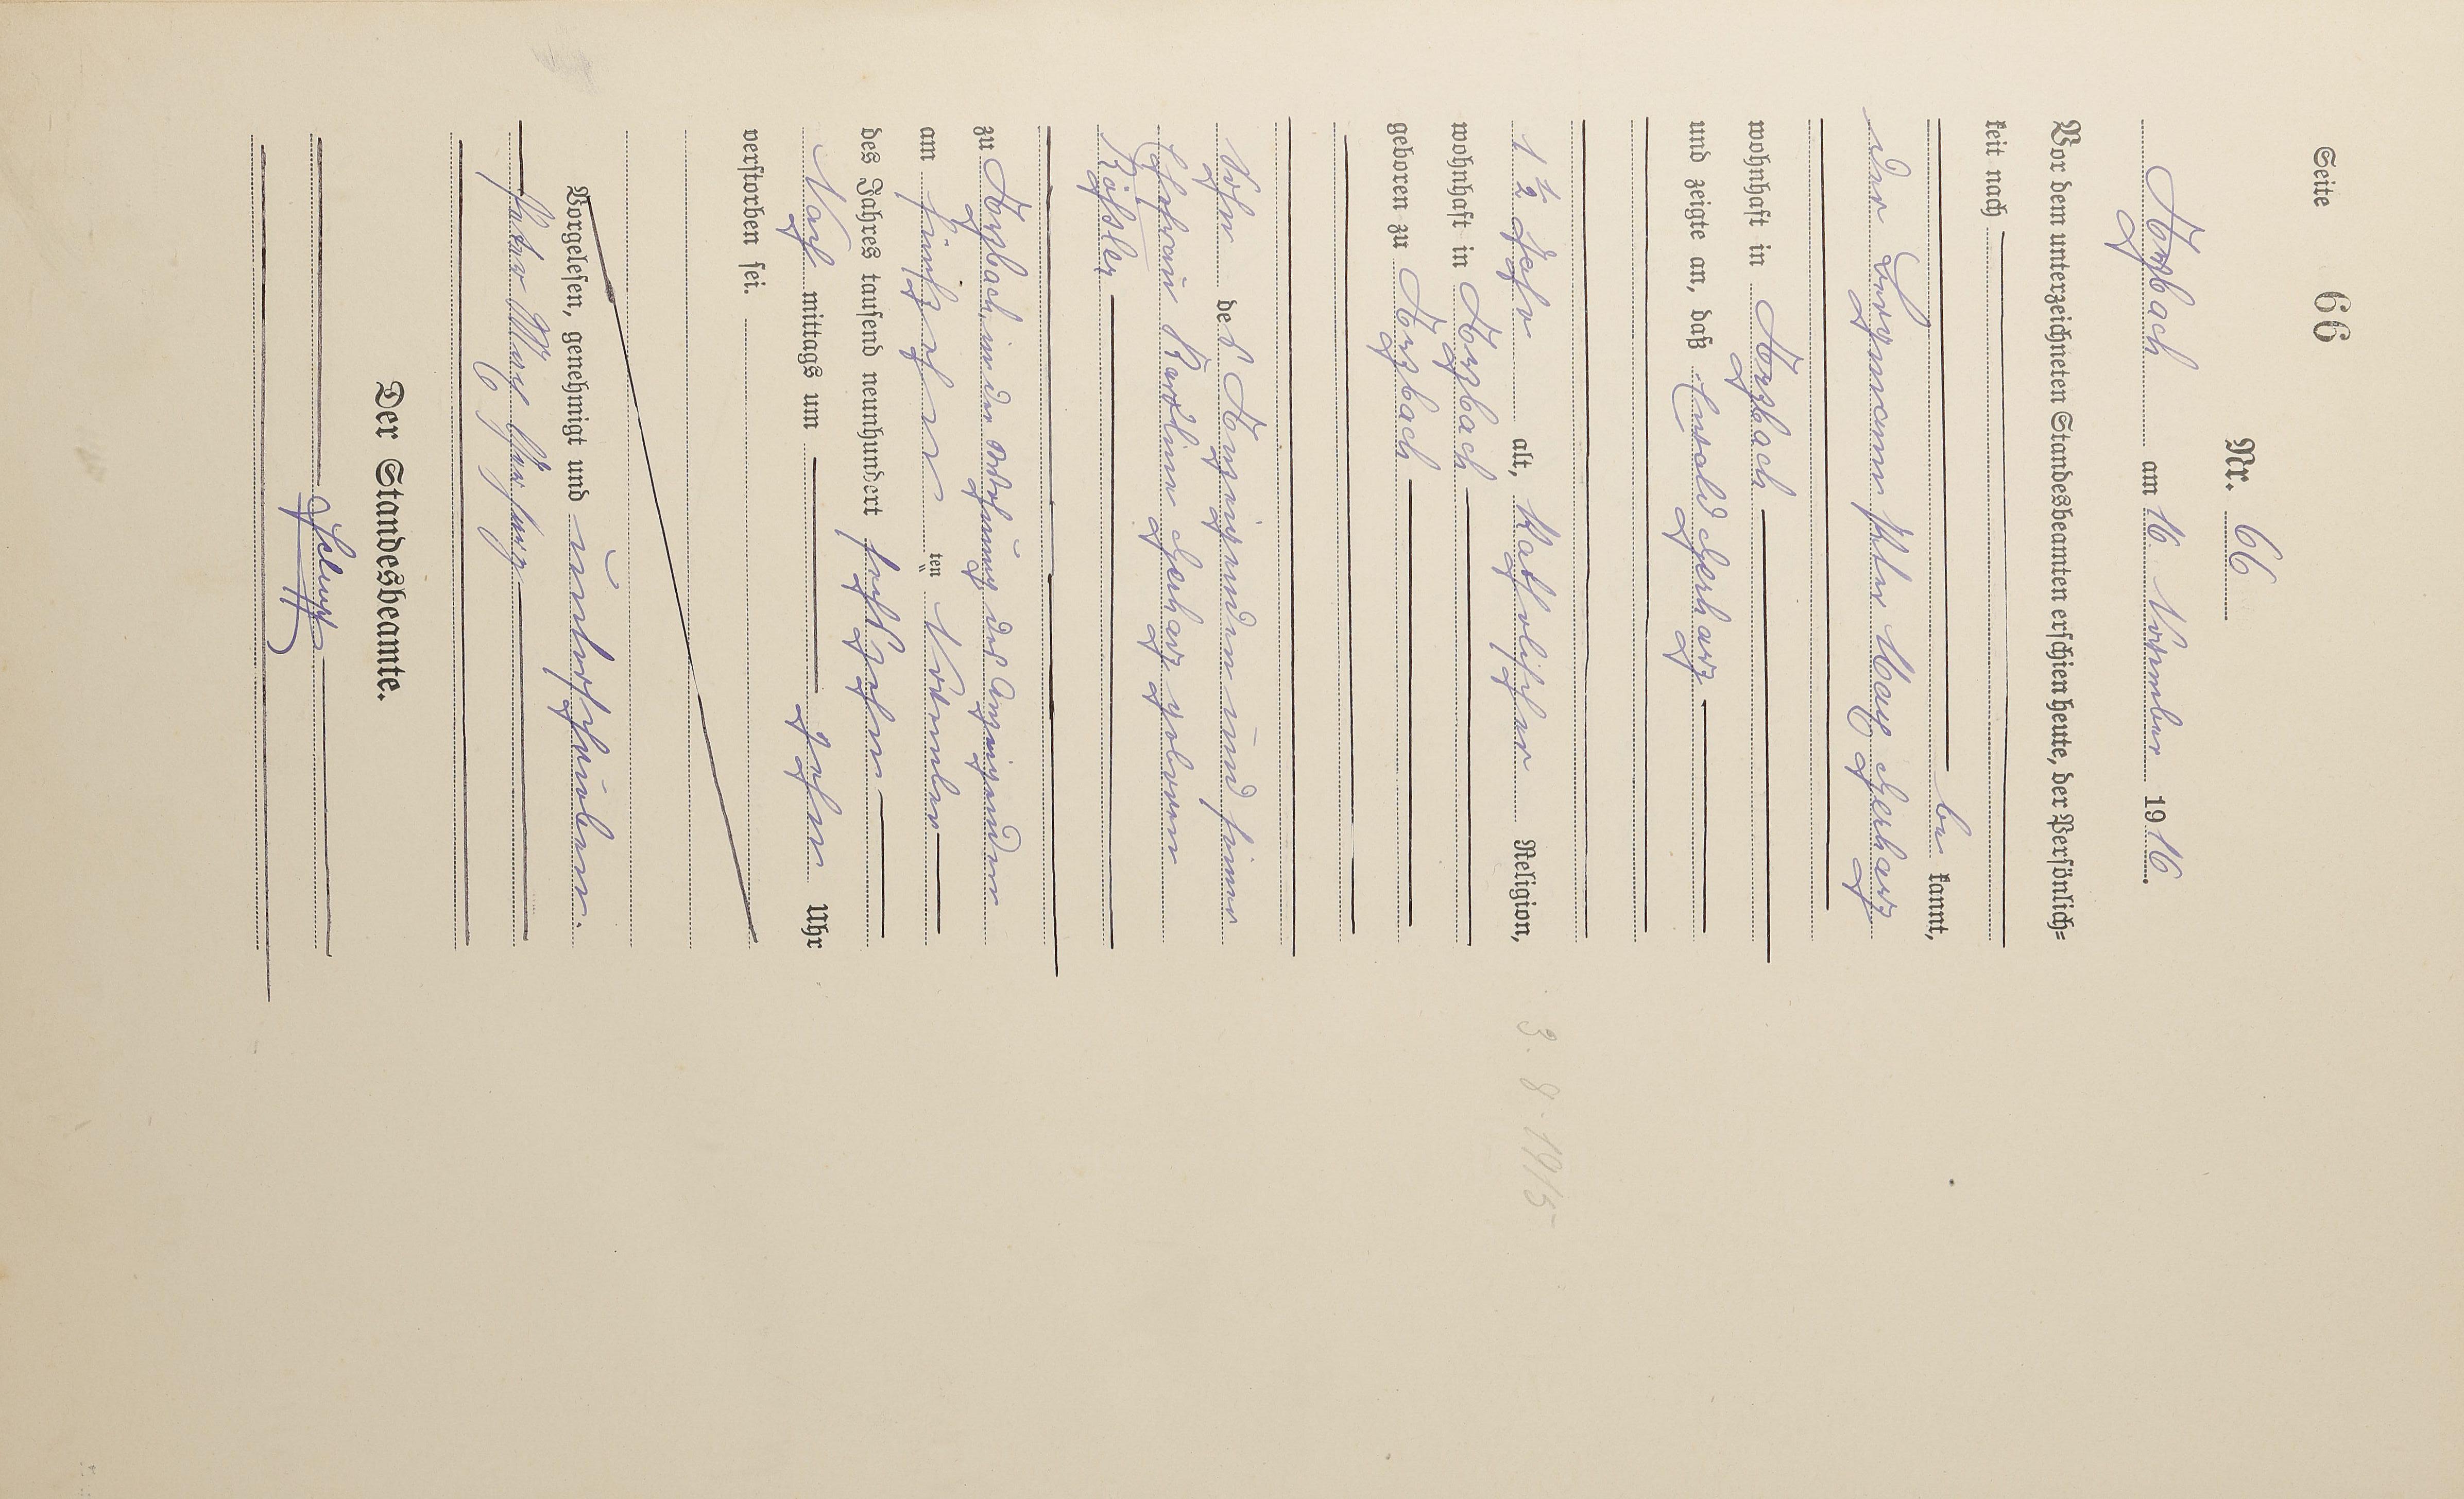 Seite 66
Nr. 66
Arzbach am 16. November 1916.
Vor dem unterzeichneten Standesbeamten erschien heute, der Persönlich=
keit nach
be kannt,
der Bergmann Peter May Gerharz
wohnhaft in Arzbach
und zeigte an, daß Ewald Gerharz
1 ½ Jahre alt, katholischer Religion,
wohnhaft in Arzbach
geboren zu Arzbach
Sohn des Anzeigenden und seiner
Ehefrau Karoline Gerharz geborene
Rößler
zu Arzbach, in der Wohnung des Anzeigenden
am fünfzehn ten November
des Jahres tausend neunhundert sechszehn
Nach mittags um zehn Uhr
verstorben sei.
Vorgelesen, genehmigt und unterschrieben.
Peter Gerharz
Der Standesbeamte.
3. 8. 1915